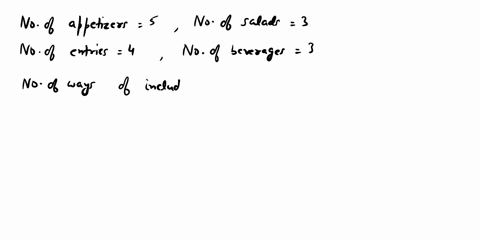 No. of appetizers = 5 , No. of salads = 3
No. of entries = 4 , No. of beverages = 3
No. of ways of includ